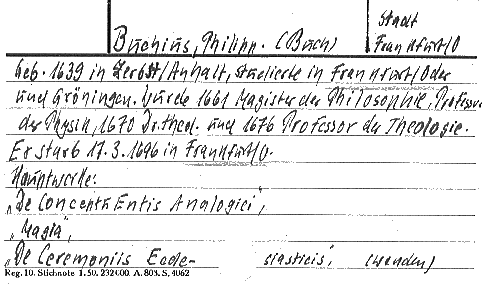 Stadt
Buchius, Philipp. (Buch)
Frankfurt/O
Geb. 1639 in Zerbst/Anhalt, studierte in Frankfurt/Oder
und Gröningen. Wurde 1661 Magister der Philosophie, Professor
der Physik, 1670 Dr. theol. und 1676 Professor der Theologie.
Er starb 17.3.1696 in Frankfurt/O.
Hauptwerke:
„De Concentu Entis Analogici",
„Magia",
„De Ceremoniis Eccle- siasticis", (wenden)
Reg. 10. Stichnote 1. 50. 232000. A. 803. S. 4062